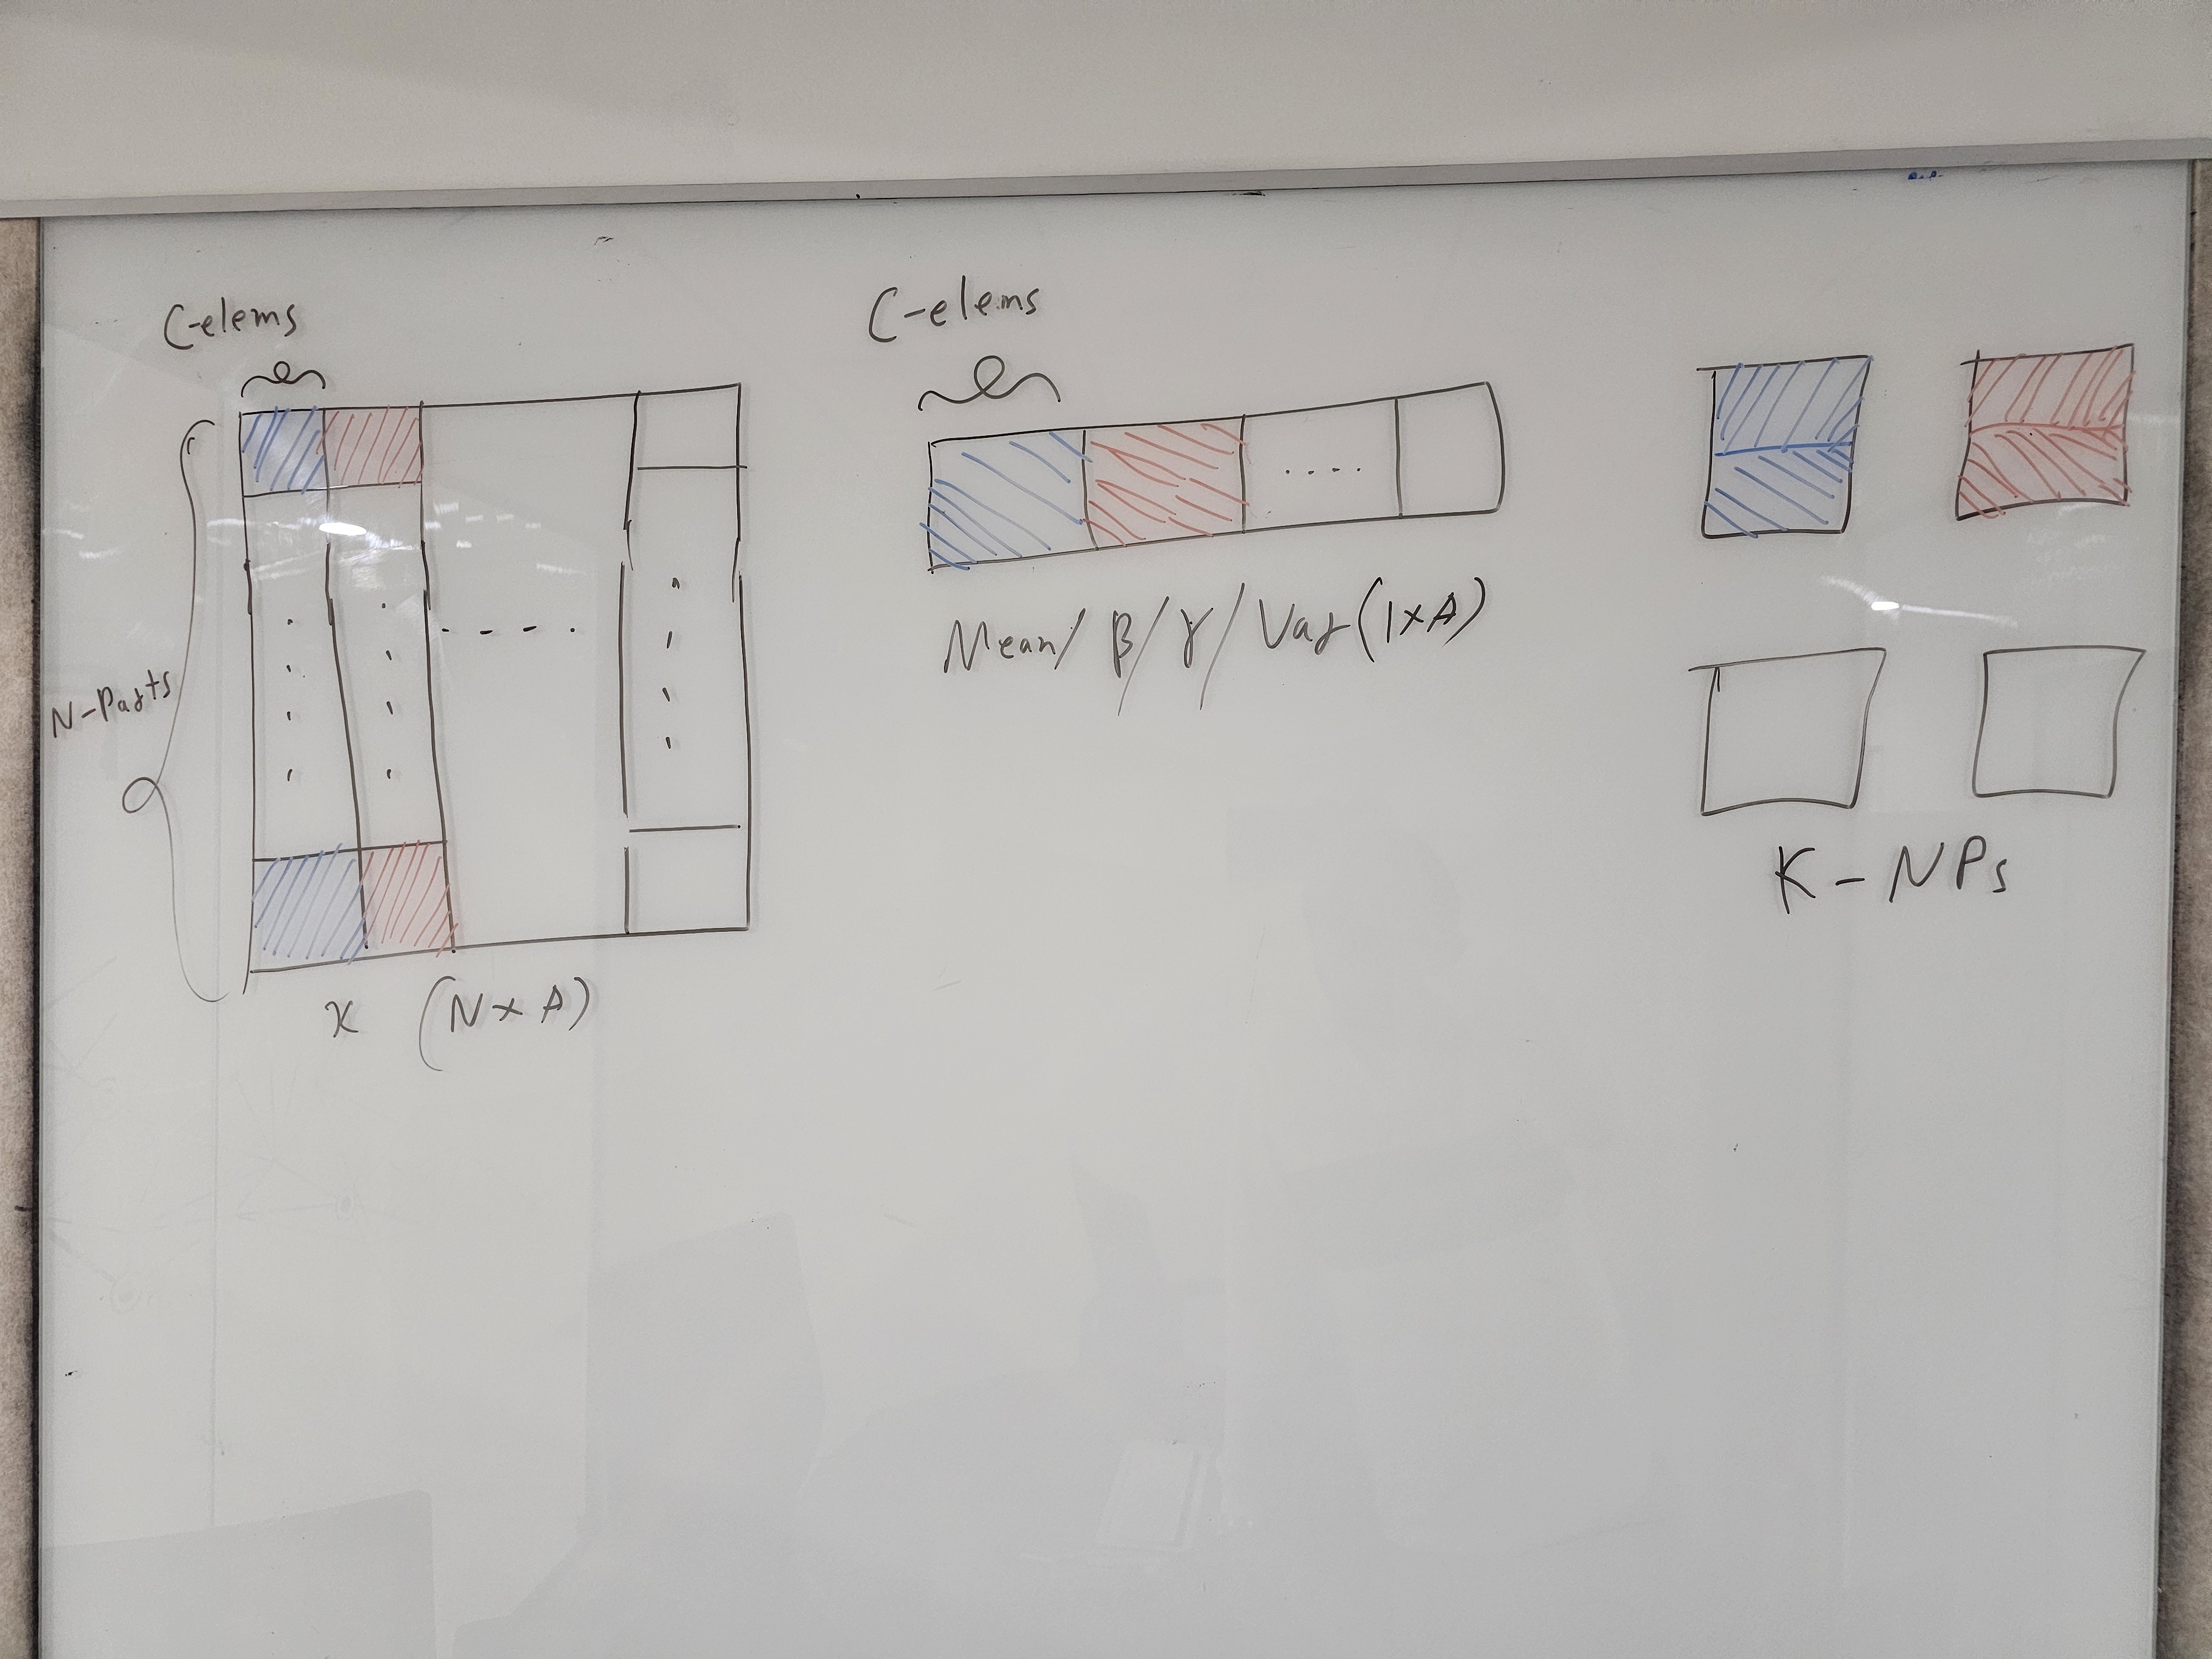 C-elems
N-Parts
x (N x A)
C-elems
Mean/ β/ γ/ Var (1xA)
K - NPs